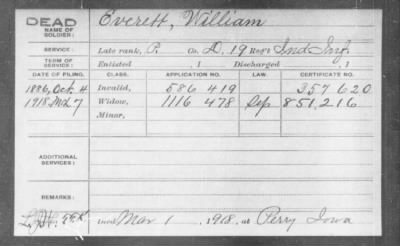 DEAD Everett, William
NAME OF SOLDIER:
SERVICE: Late rank, P. Co. D, 19 Reg't Ind Inf.
TERM OF SERVICE: Enlisted , 1 Discharged , 1
DATE OF FILING. CLASS. APPLICATION NO. LAW. CERTIFICATE NO.
1886, Oct. 4 Invalid, 586 419 357 620
1918 Mch 7 Widow, 1116 478 851,216
Minor,
ADDITIONAL SERVICES:
REMARKS:
Died Mar 1, 1918, at Perry Iowa